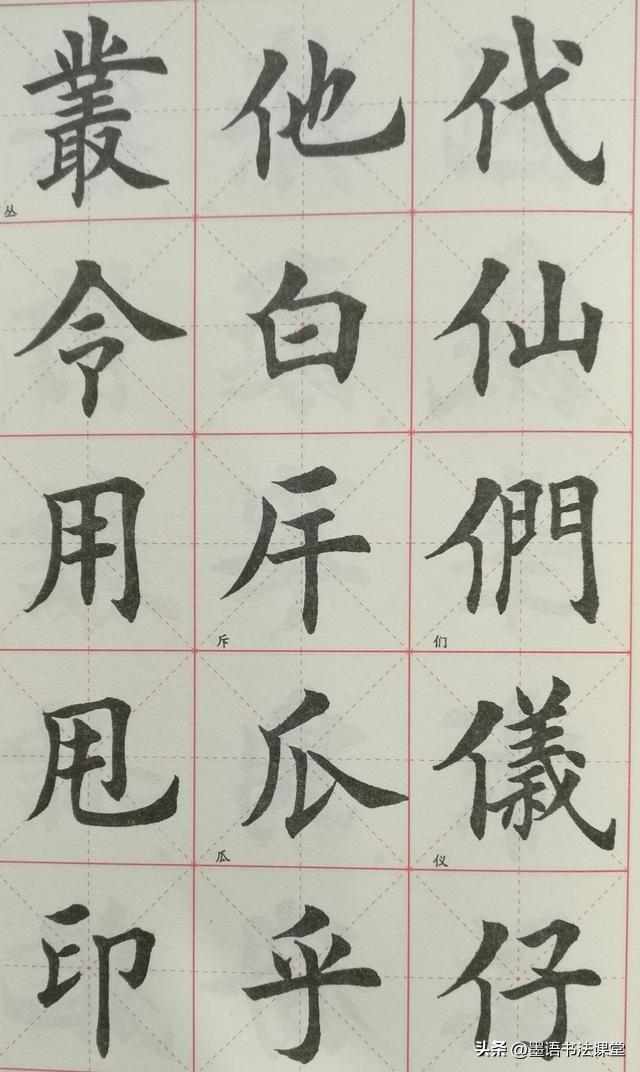 代仙們们儀仪仔
他白斥斥瓜瓜乎
叢丛令用甩印
头条 @墨语书法课堂